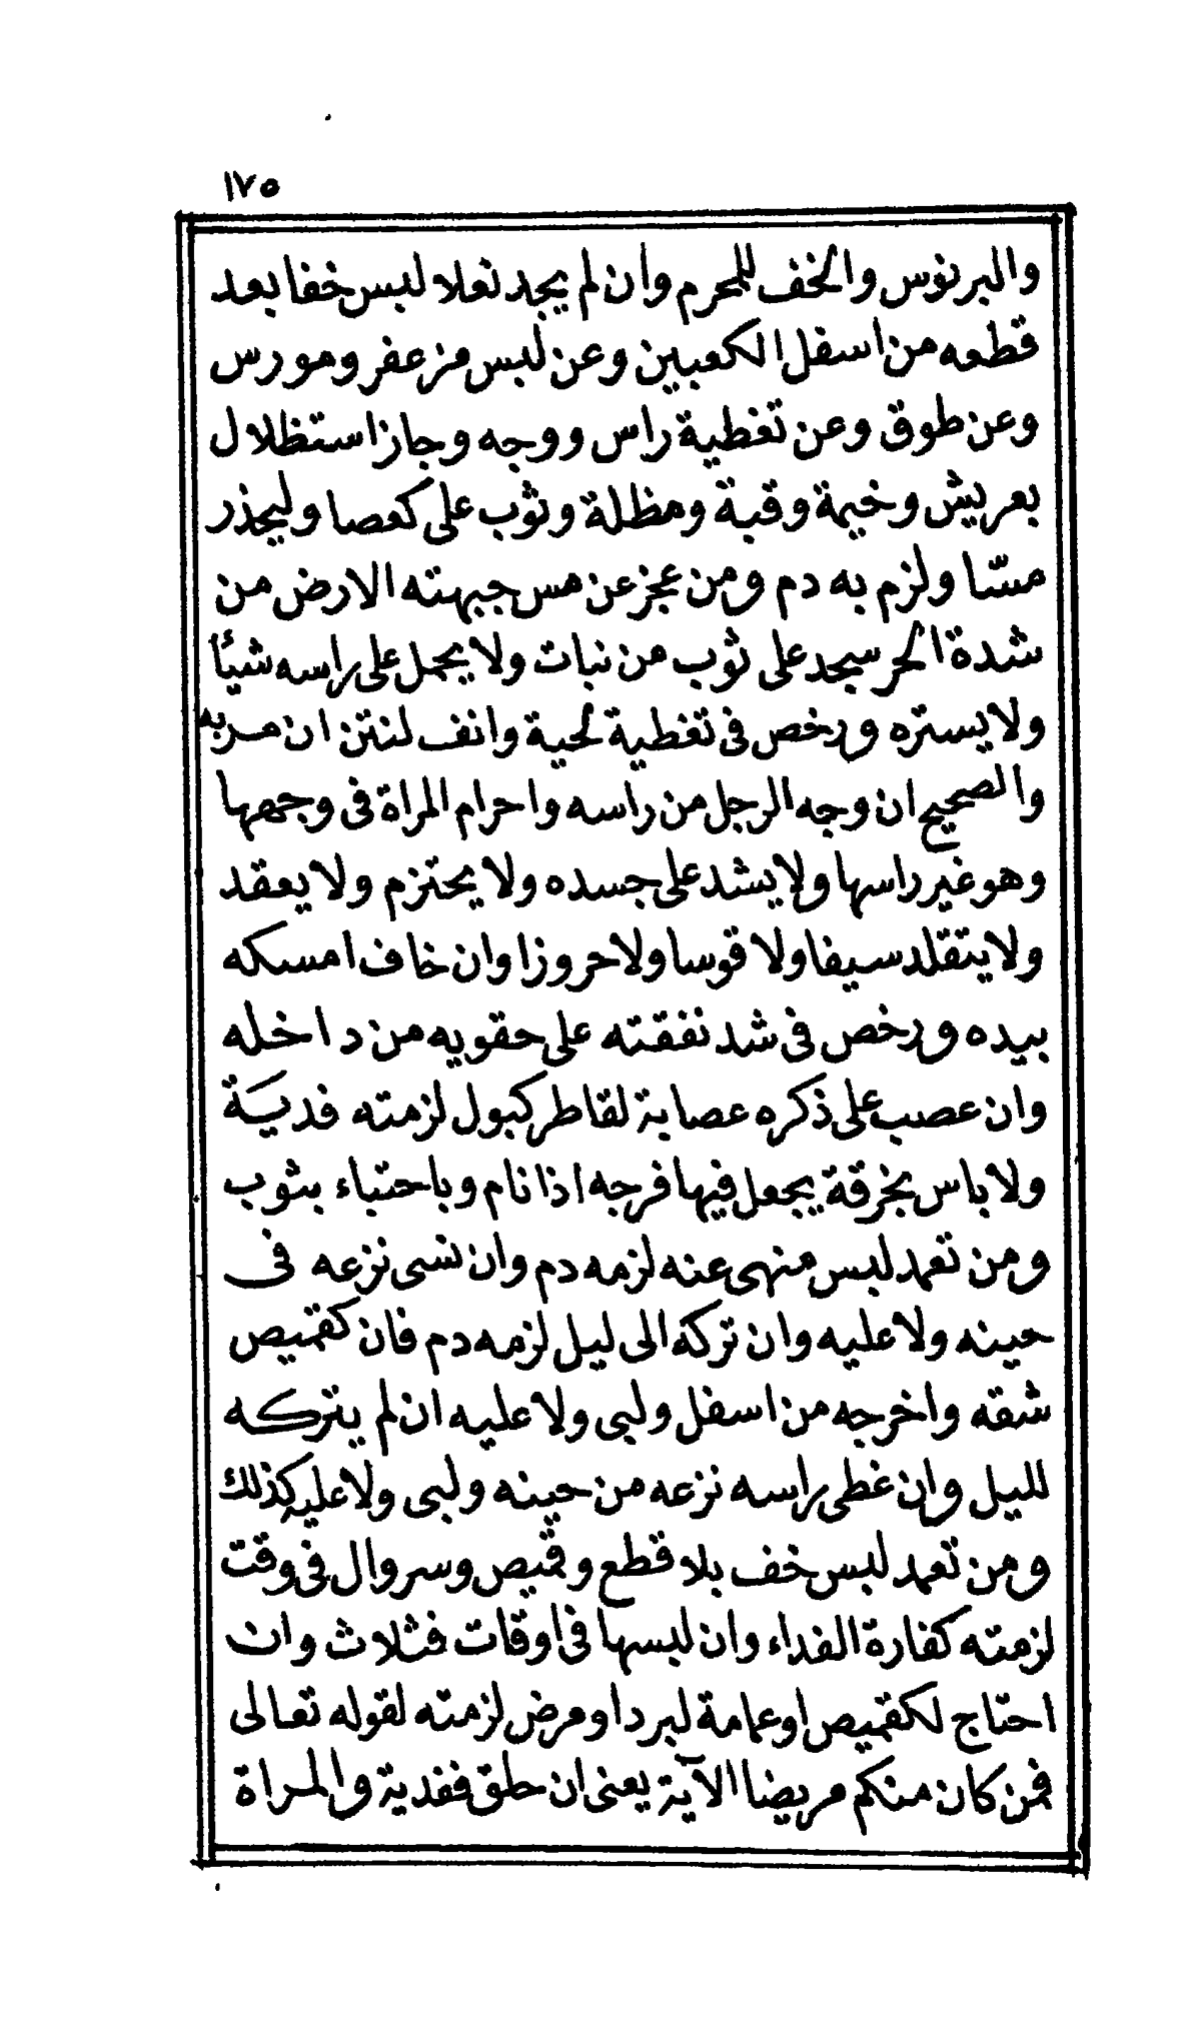 ١٧٥
والبرنوس والخف للمحرم وان لم يجد نعلا لبس خفا بعد
قطعه من اسفل الكعبين وعن لبس مزعفر ومورس
وعن طوق وعن تغطية راس ووجه وجاز استظلال
بعريش وخيمة وقبة ومظلة وثوب على كعصا وليحذر
مسّا ولزم به دم ومن عجز عن مس جبهته الارض من
شدة الحر سجد على ثوب من نبات ولا يحمل على راسه شيأ
ولا يستره ورخص فى تغطية لحية وانف لنتن ان مر به
والصحيح ان وجه الرجل من راسه واحرام المراة فى وجهها
وهو غير راسها ولا يشد على جسده ولا يحتزم ولا يعقد
ولا يتقلد سيفا ولا قوسا ولا حروزا وان خاف امسكه
بيده ورخص فى شد نفقته على حقويه من داخله
وان عصب على ذكره عصابة لقاطر كبول لزمته فدية
ولا باس بخرقة يجعل فيها فرجه اذا نام وباحتباء بثوب
ومن تعمد لبس منهى عنه لزمه دم وان نسى نزعه فى
حينه ولا عليه وان تركه الى ليل لزمه دم فان كقميص
شقه واخرجه من اسفل ولبى ولا عليه ان لم يتركه
لليل وان غطى راسه نزعه من حينه ولبى ولا عليه كذلك
ومن تعمد لبس خف بلا قطع وقميص وسروال فى وقت
لزمته كفارة الفداء وان لبسها فى اوقات فثلاث وان
احتاج لكقميص او عمامة لبرد او مرض لزمته لقوله تعالى
فمن كان منكم مريضا الآية يعنى ان حلق ففدية والمراة